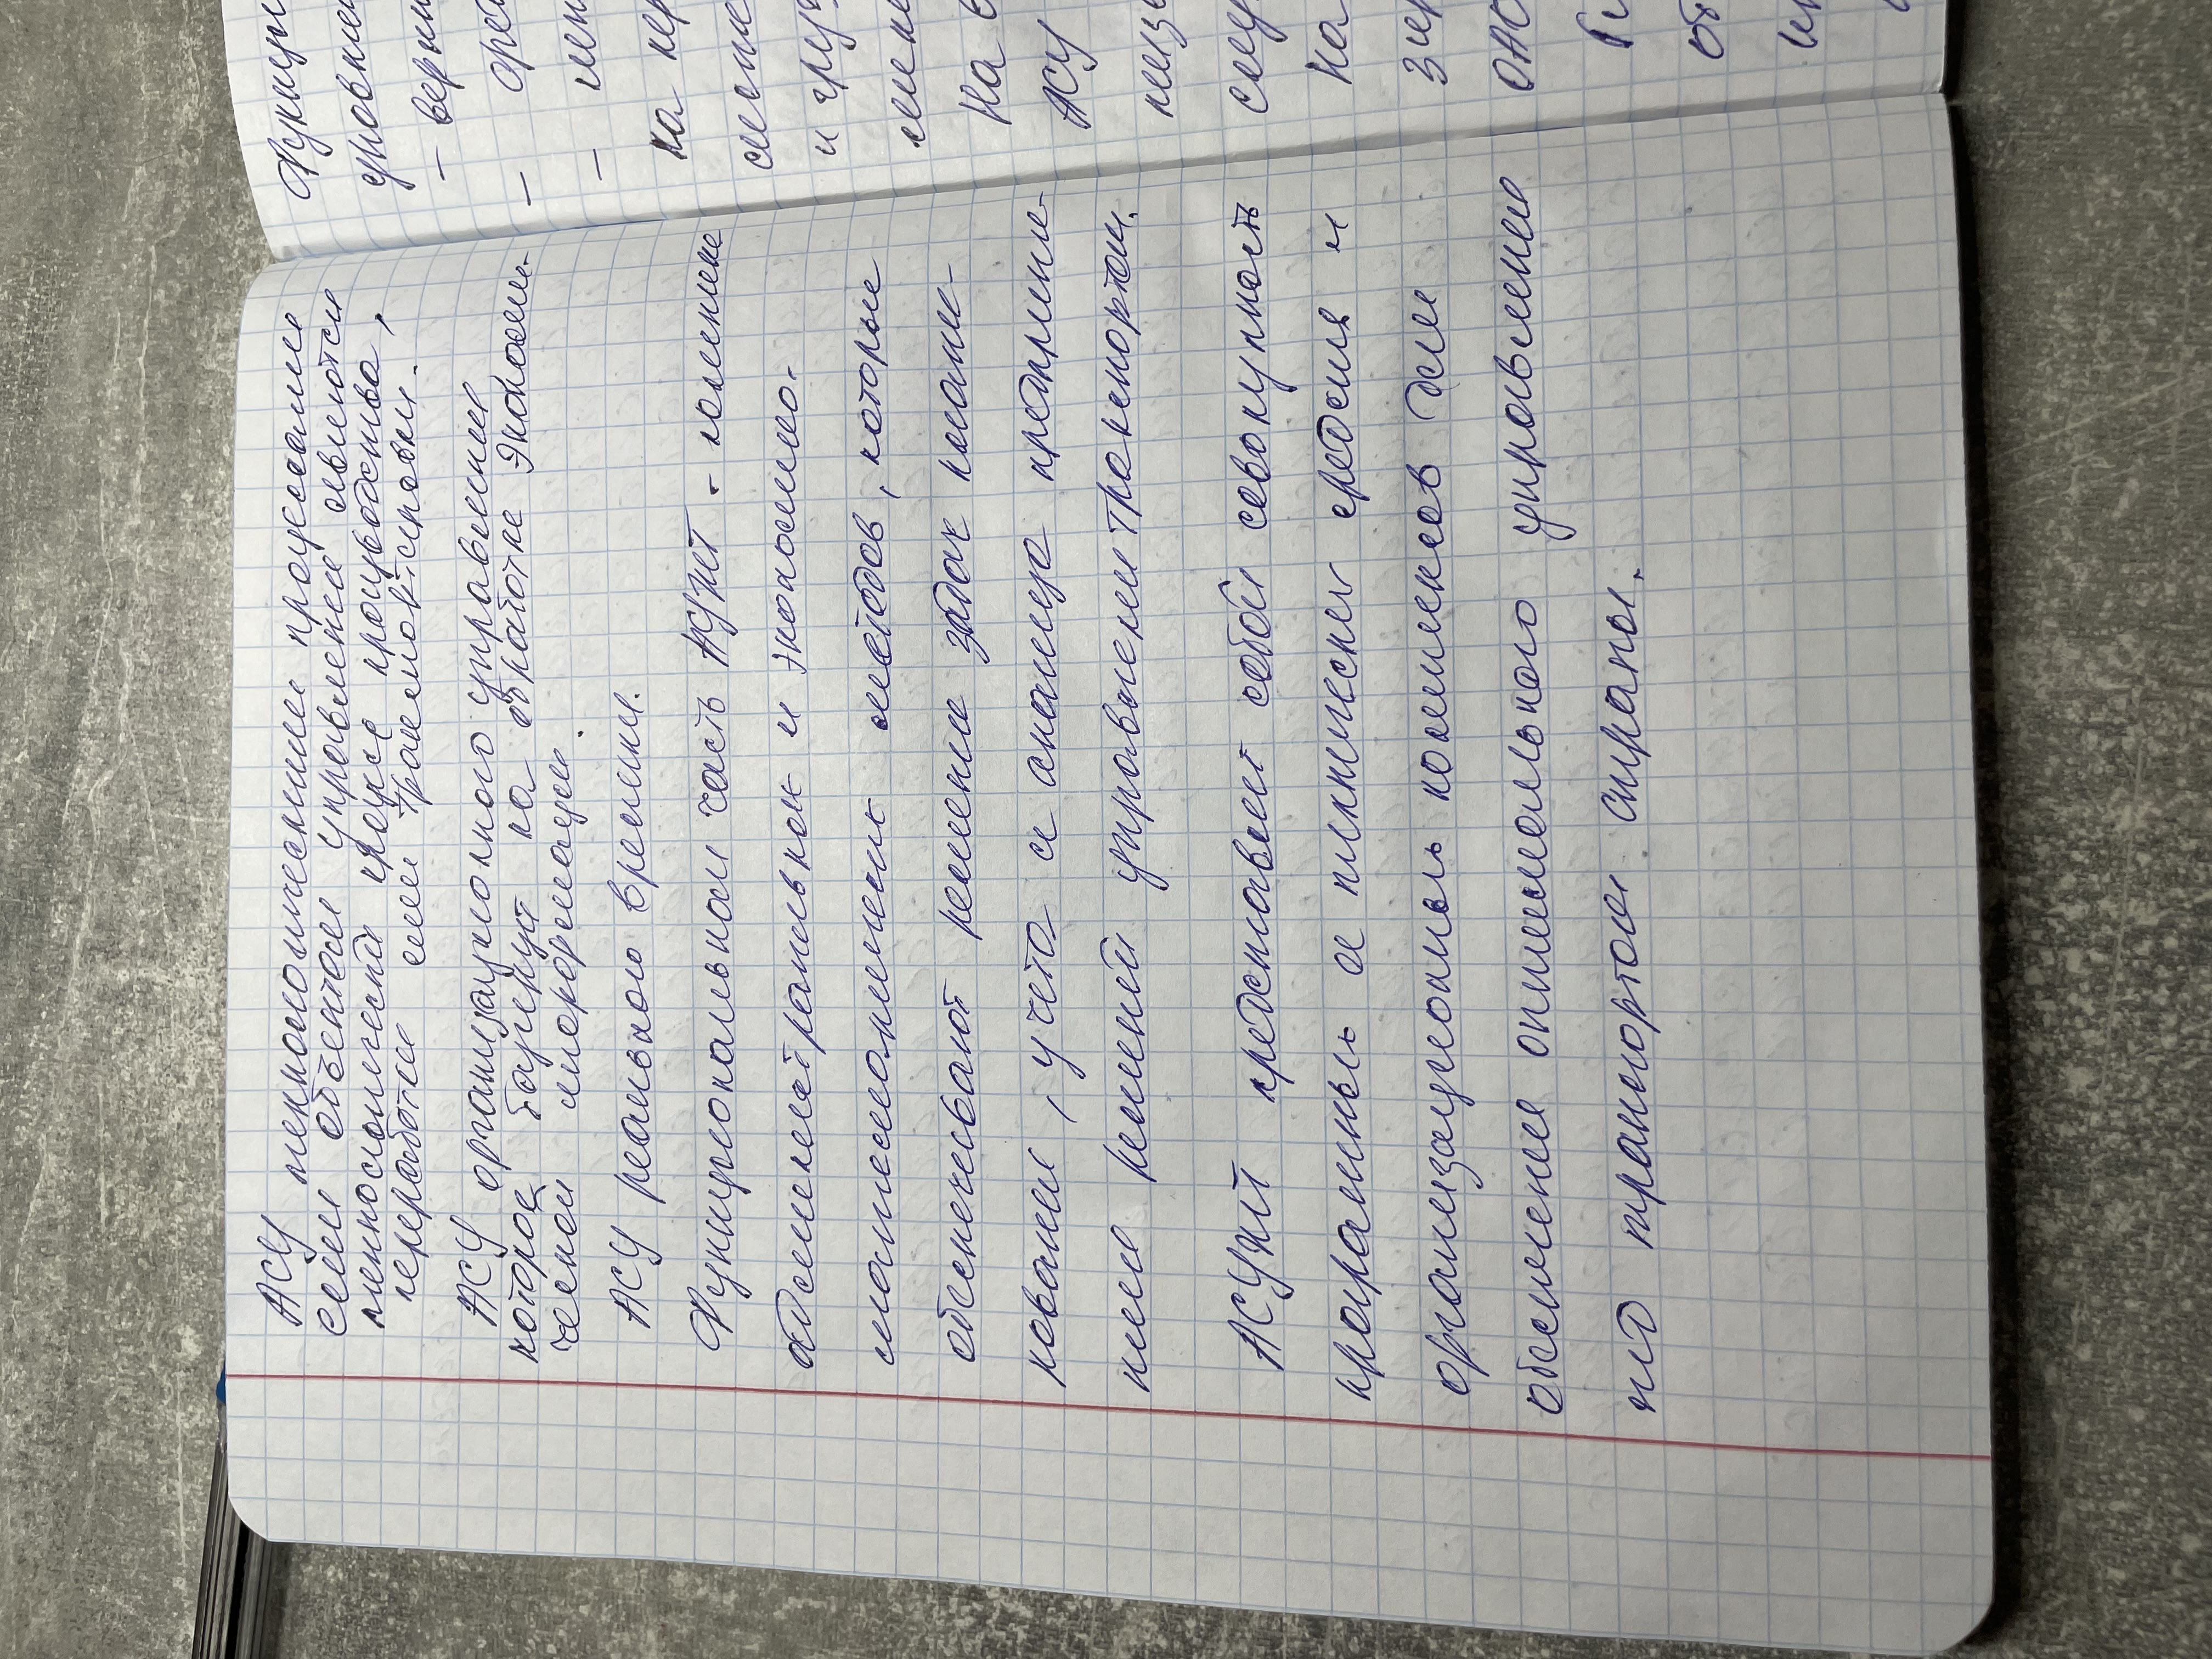 АСУ технологическими процессами
сами объектами управления являются
технологический процесс производства,
переработки или транспортировки.
АСУ организационного управления
которое базируют на обработке экономи-
ческой информации.
АСУ реального времени.
Функциональная часть АСУЖТ - комплекс
административных и экономико-
математических методов, которые
обеспечивают решение задач плани-
рования, учета и анализа предприня-
тие решений управления транспортом.
АСУЖТ представляет собой совокупность
программы и технических средств и
организационных комплексов для
обеспечения оптимального управления
жд транспортом страны.
Функцион
уровнем
- верхн
- сред
- лин
на пер
и
На
АСУ
На
от